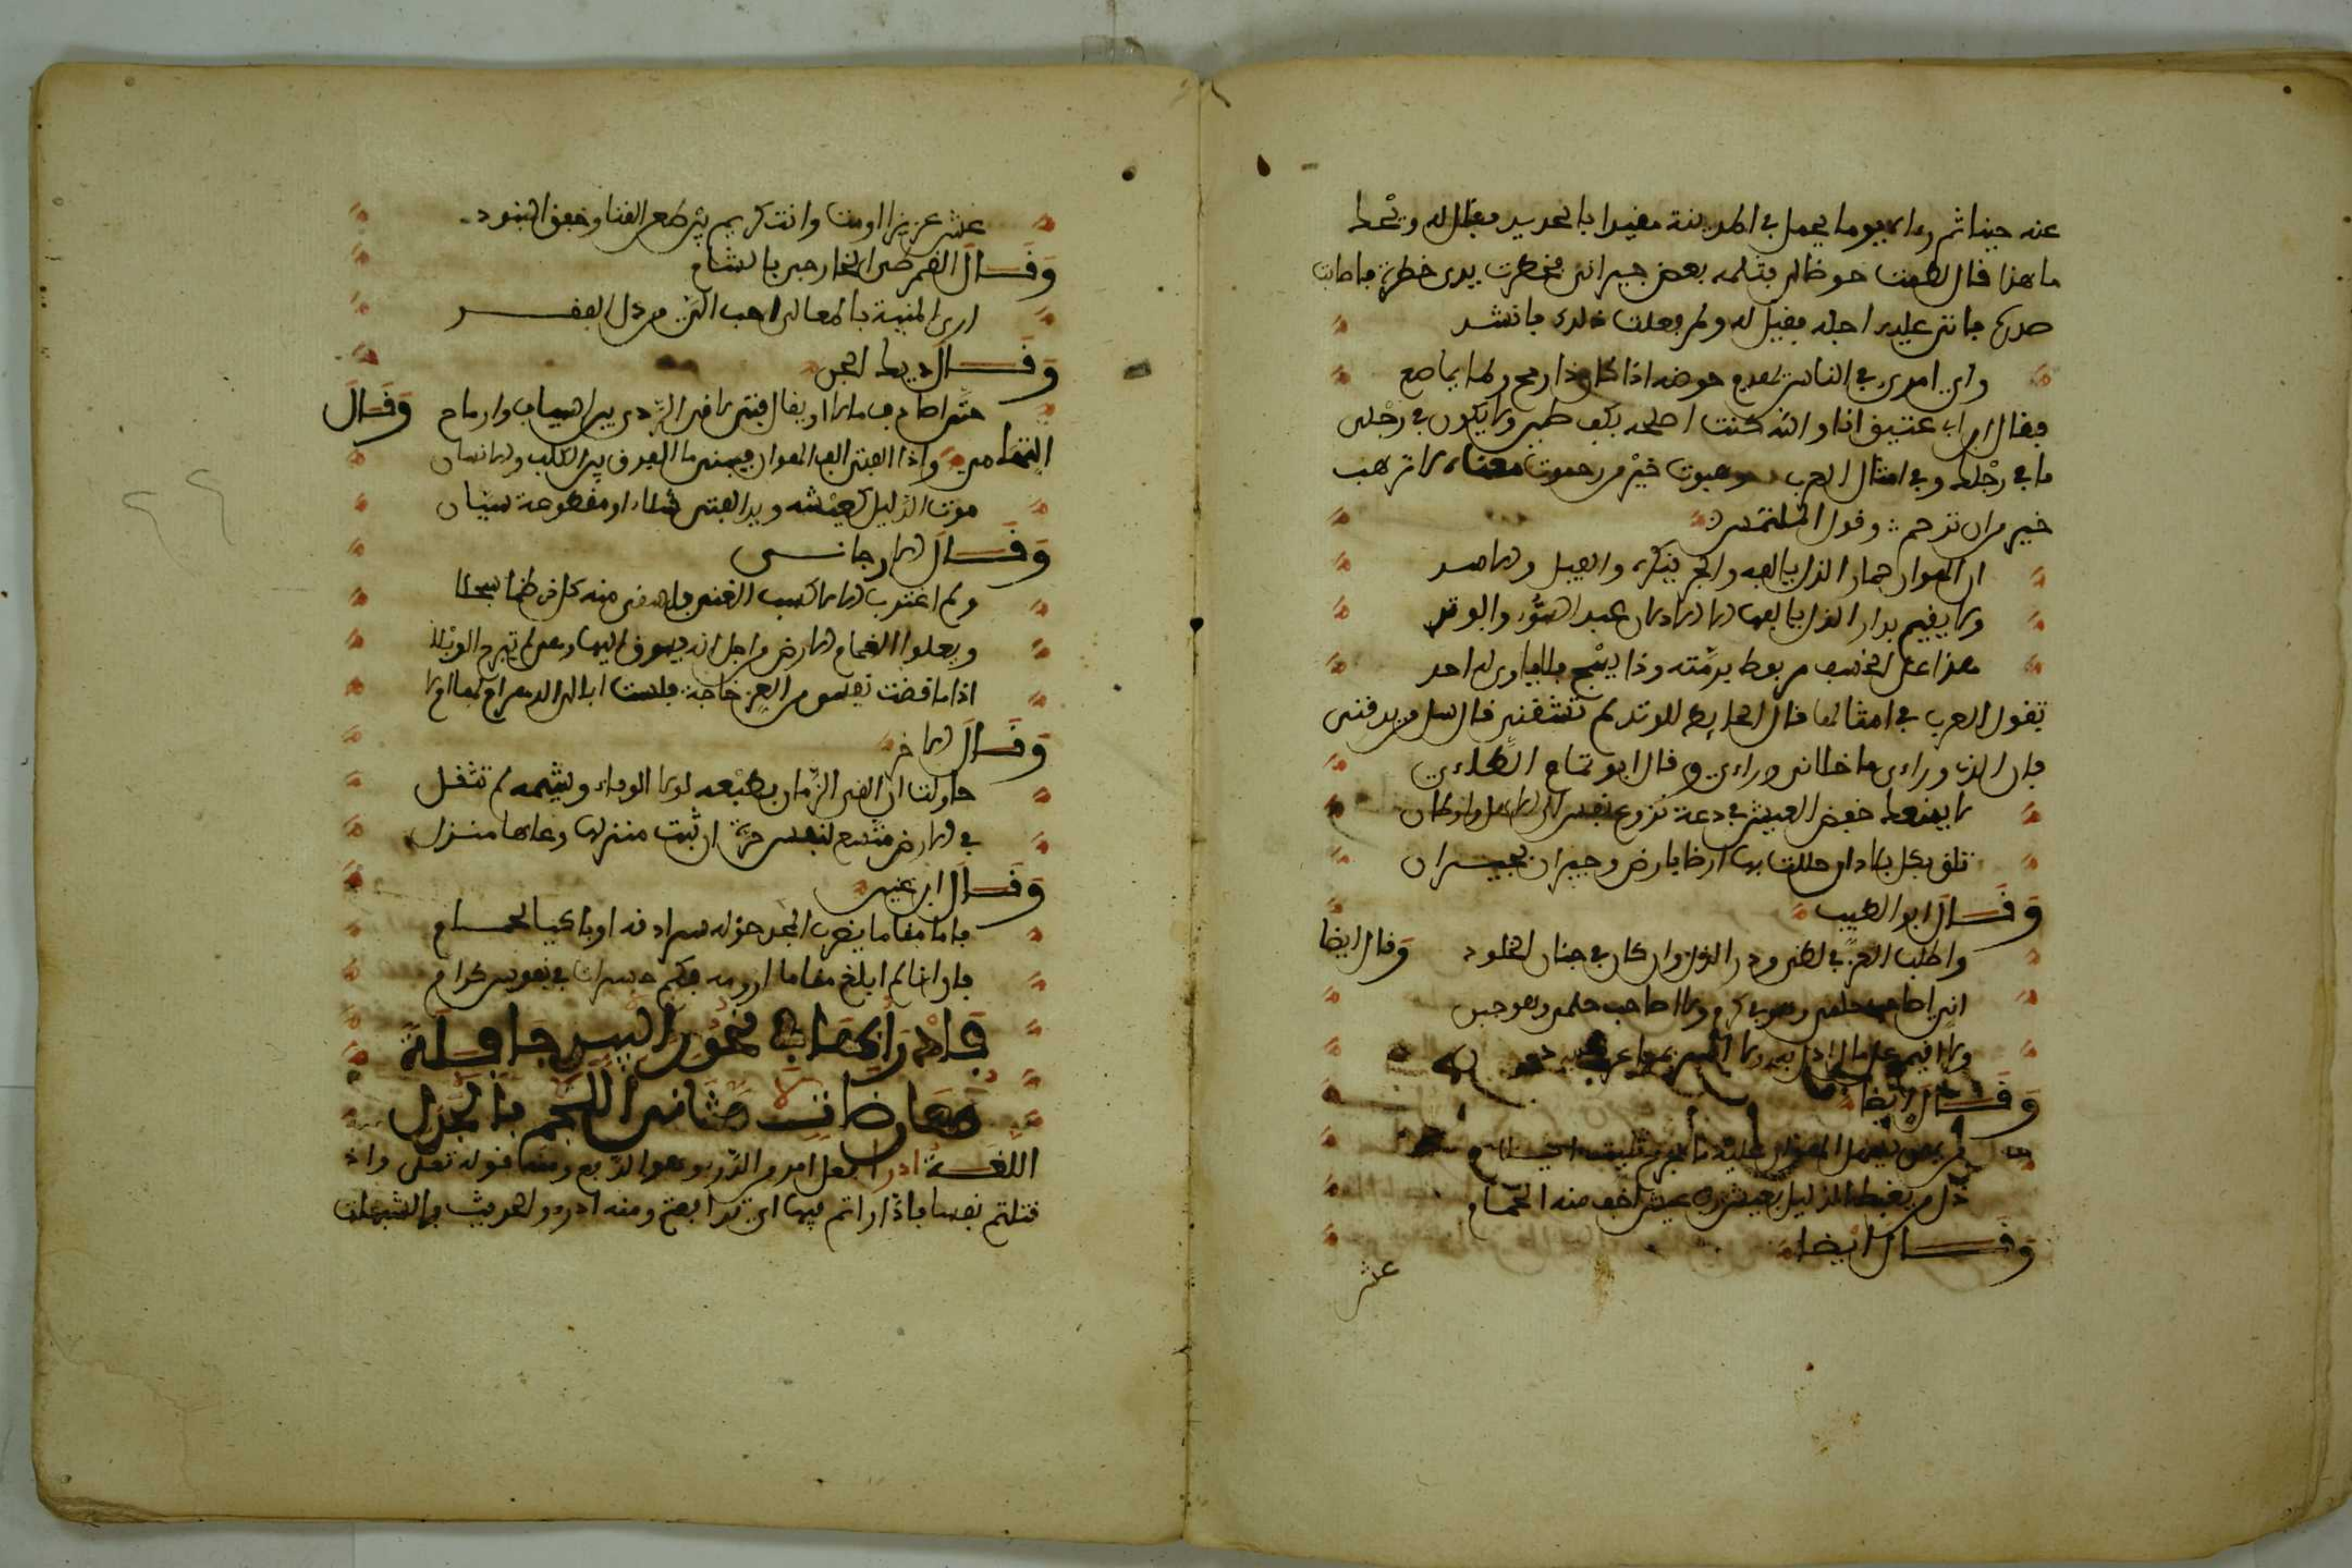 عنه حينا ثم رءاه يوما يحمل في المدينة مقيدا بالحديد فقال له ويحك
ما هذا قال لطمت حوضا لي بثلمه بعض جيراني فخطرت يدي خطرة فاصابت
صدره فاتى عليه اجله فقيل له ولم فعلت ذلك فانشد
واي امرئ في الناس يهدم حوضه اذا كان ذا رمح ولما يماصع
فقال ابن ابي عتيق انا والله كنت اصلحه بكف طين ولا يكون في رجلي
ما في رجلك وفي امثال العرب رهبوت خير من رحموت معناه لان ترهب
خير من ان ترحم وقول المتلمس
ان الهوان حمار الذل يالفه والحر ينكره والفيل والاسد
ولا يقيم بدار الذل يالفها الا الاذلان عير السوء والوتد
هذا على الخسف مربوط برمته وذا يشج فلا ياوي له احد
تقول العرب في امثالها قال الحايط للوتد لم تشقني قال سل من يدقني
فان الذي وراءي ما خلاني وراءي وقال ابو تمام الطاءي
لا يمنعنك خفض العيش في دعة نزوع نفس الى اهل واوطان
تلقى بكل بلاد ان حللت بها ارضا بارض وجيرانا بجيران
وقال ابو الطيب
واطلب العز في لظى وذر الذل ولو كان في جنان الخلود وقال ايضا
اني اصاحب حلمي وهو بي كرم ولا اصاحب حلمي وهو جبن
ولا اقيم على مال اذل به ولا الذ بما عرضي به درن
وقال ايضا
من يهن يسهل الهوان عليه ما لجرح بميت ايلام
ذل من يغبط الذليل بعيش رب عيش اخف منه الحمام
وقال ايضا
عش
عش عزيزا او مت وانت كريم بين طعن القنا وخفق البنود
وقال القمرطي الخارجي بالشام
ارى المنية بالمعالي احب الي من ذل الفقر
وقال ديك الجن
حتى اصادف مالا او يقال فتى لاقى الردى بين اسياف وارماح وقال
التهامي واذا الفتى الف الهوان فبينوا ما الفرق بين الكلب والانسان
موت الذليل كعيشه ويد الفتى شلاء او مقطوعة سيان
وقال الارجاني
ولم اغترب الا لاكسب الغنى فاسقى منه كل ظما سجلا
ويعلوا الغمام الارض من اجل انه يسوق اليها وهي لم تبرح الوبلا
اذا ما قضت نفسي من العز حاجة فلست ابالي الدهر املى لها ام لا
وقال الاخر
حاولت ان القى الزمان بطبعه لولا الوفاء وشيمه لم تنقل
في الارض متسع لنفس حرة ان نبت منزلها دعاها منزل
وقال ابن عنين
فاما مقاما يضرب المجد حوله سرادقه او باكيا لحمام
فان انا لم ابلغ مقاما ارومه فكم حسرات في نفوس كرام
فادرا بها في نحور البيد جافلة
معارضات مثاني اللجم بالجدل
اللغة ادرا فعل امر من الدرء وهو الدفع ومنه قوله تعالى واذ
قتلتم نفسا فاداراتم فيها اي تدافعتم ومنه ادرءوا الحدود بالشبهات